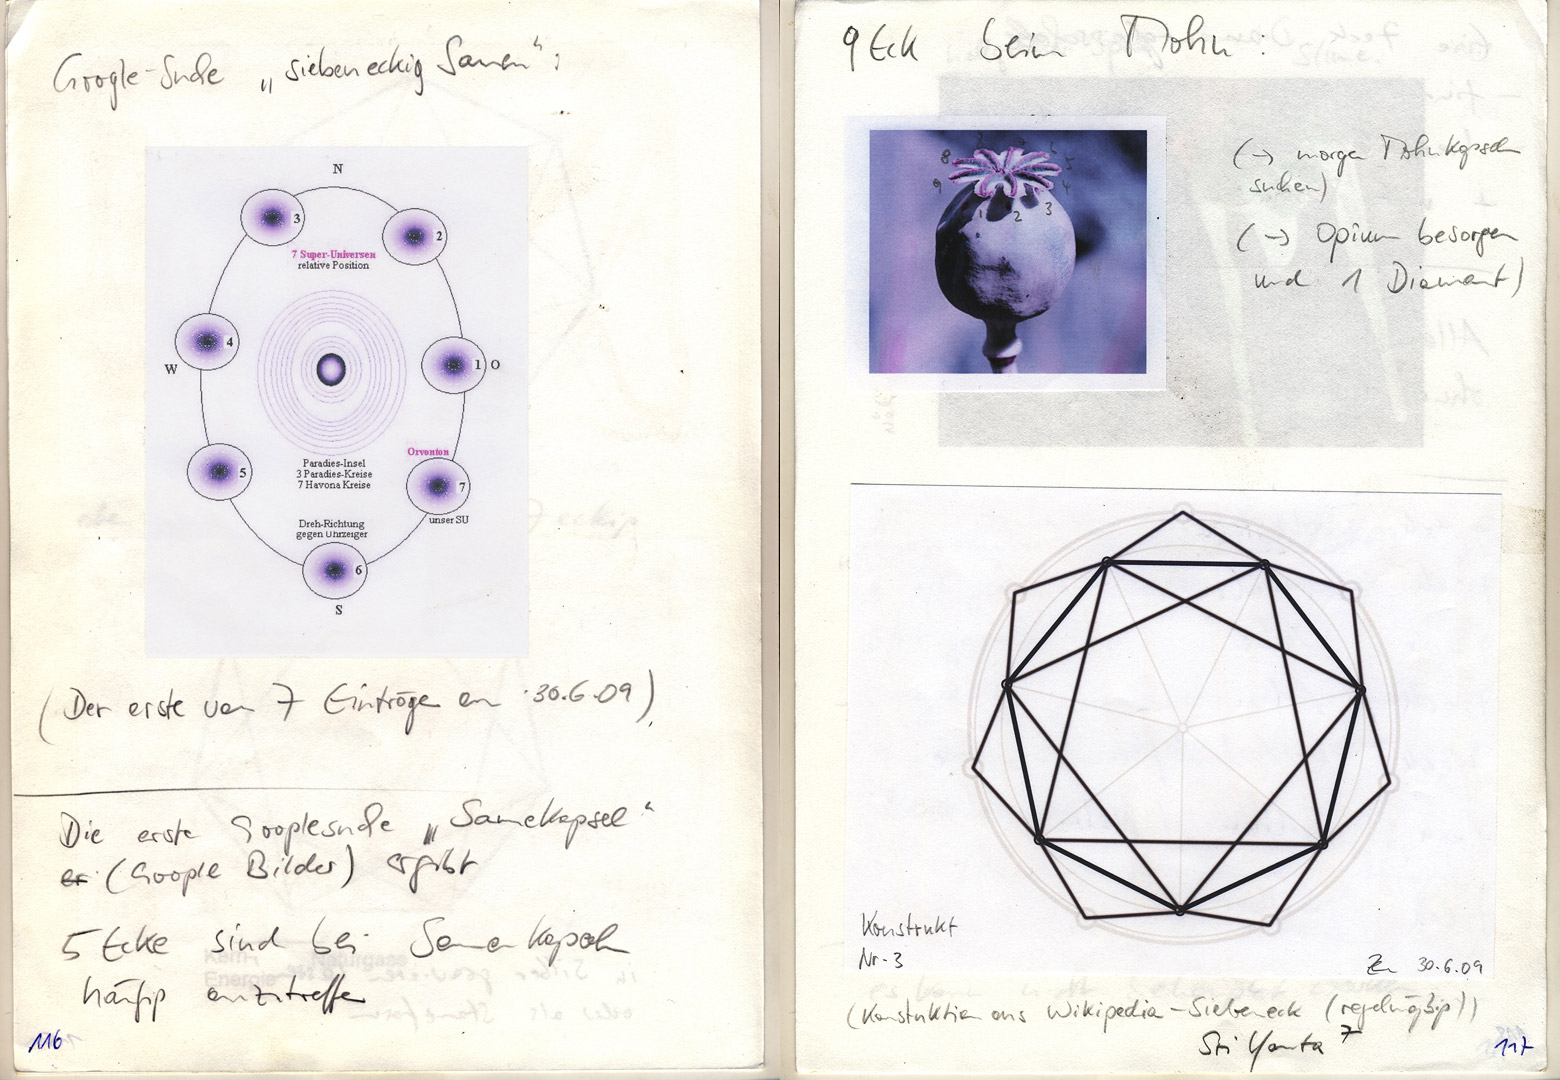 Google-Suche „siebeneckig Samen“:
N
3
2
7 Super-Universen
relative Position
4
W
1
O
5
Orvonton
Paradies-Insel
3 Paradies-Kreise
7 Havona Kreise
7
unser SU
Dreh-Richtung
gegen Uhrzeiger
6
S
(Der erste von 7 Einträgen am 30.6.09)
Die erste Googlesuche „Samenkapsel“
er (Google Bilder) ergibt
5 Ecke sind bei Samenkapseln
häufig anzutreffen
116
9 Eck beim Mohn:
(→ morgen Mohnkapseln
suchen)
(→ Opium besorgen
und 1 Diamant)
8
9
1
2
3
4
5
Konstrukt
Nr. 3
30.6.09
(Konstruktion aus Wikipedia-Siebeneck (regelmäßig))
Sri Yantra 7
117